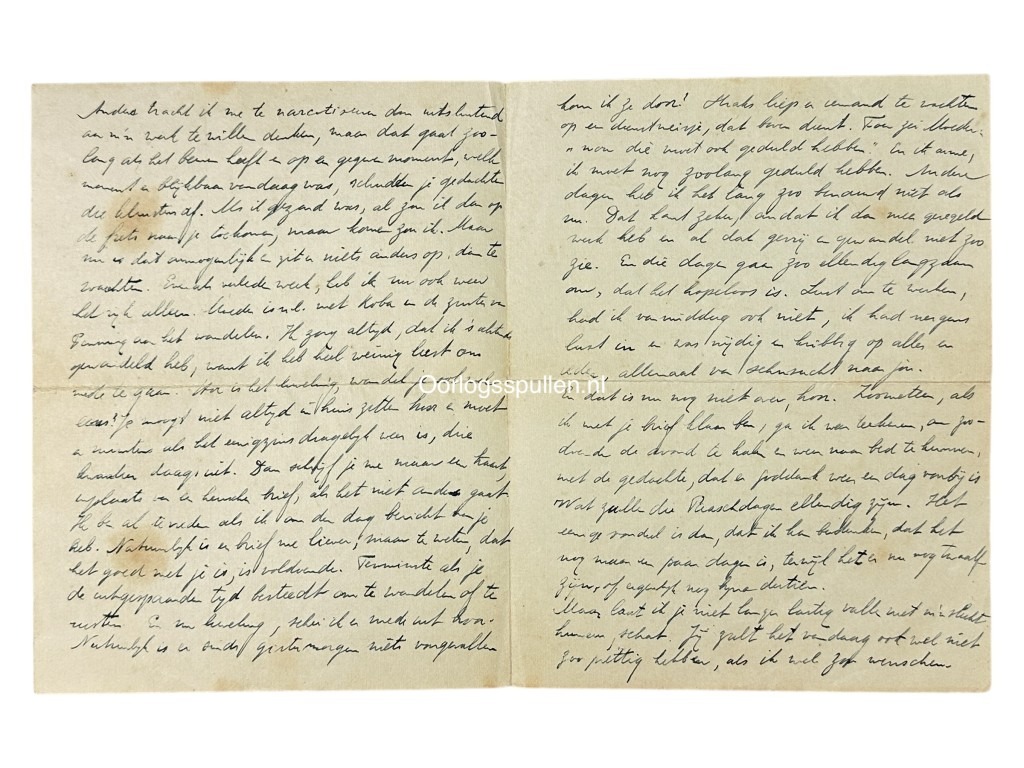 Anders tracht ik me te narcotiseren door uitsluitend
aan m'n werk te willen denken, maar dat gaat zoo-
lang als het been heeft en op een gegeven moment, welk
moment er blijkbaar vandaag was, schudden je gedachten
die af. Als ik gezond was, al zou ik dan op
de fiets naar je toe komen, maar komen zou ik. Maar
nu is dat onmogelijk en zit er niets anders op, dan te
wachten. Evenals verleden week, heb ik nu ook weer
het rijk alleen. Moeder is n.l. met Koba en de zuster van
aan het wandelen. Ik zorg altijd, dat ik 's ochtends
gewandeld heb, want ik heb heel weinig lust om
mede te gaan. Hoor is het lieveling, wandel
eens! Je moogt niet altijd in huis zitten hoor en moet
er minstens als het eenigzins dragelijk weer is, drie
daags uit. Dan schrijf je me maar een kaart,
inplaats van een brief, als het niet anders gaat
Ik ben al tevreden als ik om den dag bericht van je
heb. Natuurlijk is een brief me liever, maar te weten, dat
het goed met je is, is voldoende. Tenminste als je
de uitgespaarden tijd besteedt om te wandelen of te
rusten. En nu lieveling, schei ik er mede uit hoor.
Natuurlijk is er sinds gistermorgen niets voorgevallen
kom ik ze door! Straks liep er iemand te wachten
op een dienstmeisje, dat boven dient. Toen zei Moeder:
„nou die moet ook geduld hebben". En ik arme,
ik moet nog zoolang geduld hebben. Andere
dagen heb ik het lang zoo benauwd niet als
nu. Dat komt zeker, omdat ik dan meer geregeld
werk heb en al dat gevrij en gewandel niet zoo
zie. En die dagen gaan zoo ellendig langzaam
om, dat het hopeloos is. Lust om te werken,
had ik vanmiddag ook niet, ik had nergens
lust in en was nijdig en kribbig op alles en
ieder, allemaal van sehnsucht naar jou.
En dat is nu nog niet over, hoor. Zoometeen, als
ik met je brief klaar ben, ga ik wat teekenen, om zoo-
doende de avond te halen en weer naar bed te kunnen,
met de gedachte, dat er goddank weer een dag voorbij is
Wat zullen die Paaschdagen ellendig zijn. Het
eenige voordeel is dan, dat ik kan bedenken, dat het
nog maar een paar dagen is, terwijl het er nu nog twaalf
zijn, of eigenlijk nog bijna dertien.
Maar laat ik je niet langer lastig vallen met m'n slecht
humeur, schat. Jij zult het vandaag ook wel niet
zoo prettig hebben, als ik wel zou wenschen.
Oorlogsspullen.nl